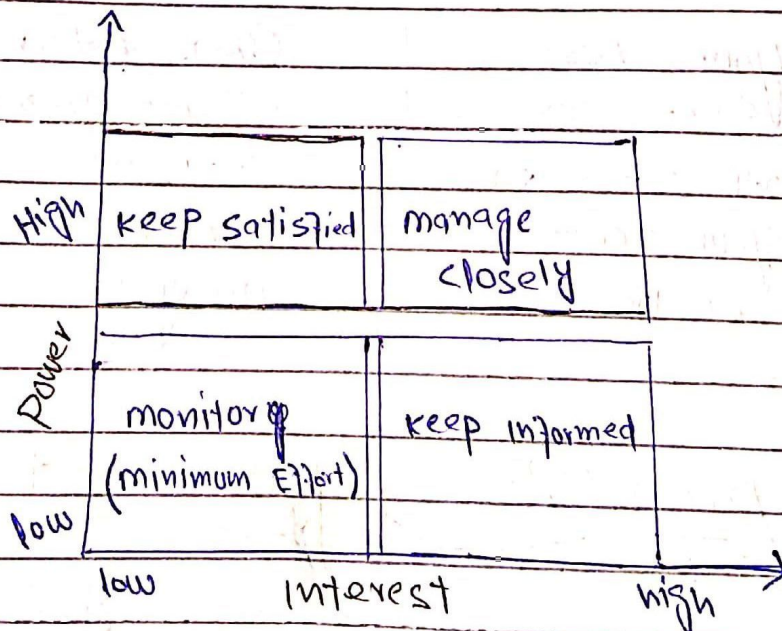 High
Keep satisfied
manage
closely
Power
monitor
(minimum Effort)
Keep informed
low
low
Interest
high